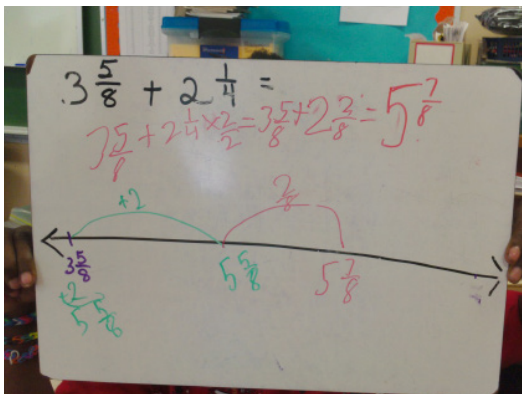 3 5/8 + 2 1/4 =
3 5/8 + 2 1/4 × 2/2 = 3 5/8 + 2 2/8 = 5 7/8
+2 2/8
3 5/8 5 5/8 5 7/8
+2
5 5/8